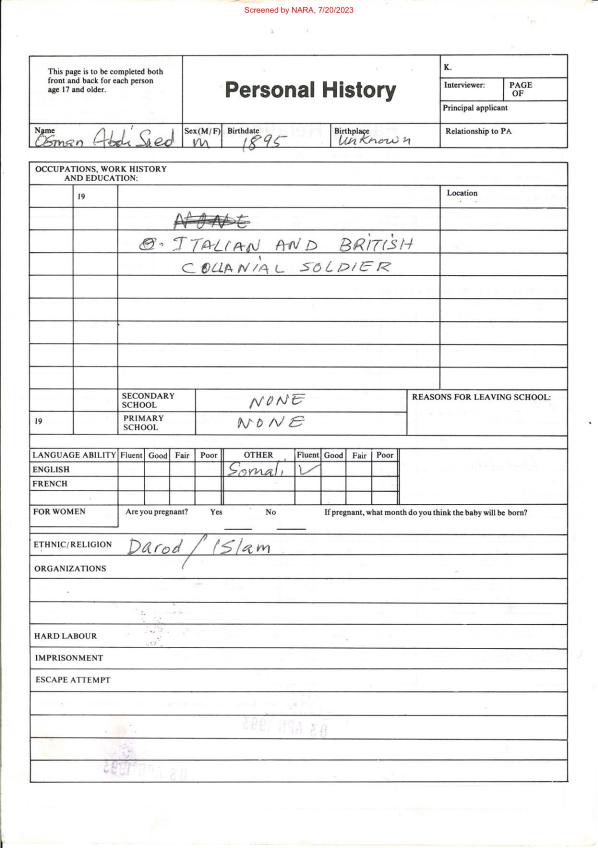 Screened by NARA, 7/20/2023
This page is to be completed both
front and back for each person
age 17 and older.
Personal History
K.
Interviewer:
PAGE
OF
Principal applicant
Name
Osman Abdi Sied
Sex(M/F)
M
Birthdate
1895
Birthplace
Unknown
Relationship to PA
OCCUPATIONS, WORK HISTORY
AND EDUCATION:
19
Location
NONE
ITALIAN AND BRITISH
COLLANIAL SOLDIER
SECONDARY
SCHOOL
NONE
REASONS FOR LEAVING SCHOOL:
19
PRIMARY
SCHOOL
NONE
LANGUAGE ABILITY Fluent Good Fair Poor OTHER Fluent Good Fair Poor
ENGLISH Somali ✓
FRENCH
FOR WOMEN Are you pregnant? Yes No If pregnant, what month do you think the baby will be born?
ETHNIC/RELIGION Darod / Islam
ORGANIZATIONS
HARD LABOUR
IMPRISONMENT
ESCAPE ATTEMPT